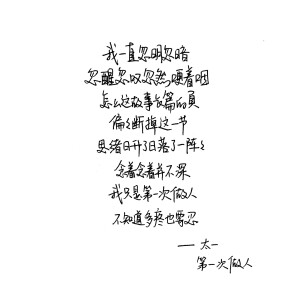 我一直忽明忽暗
忽醒忽叹忽然哽着咽
怎么这故事长篇的页
偏偏断掉这一节
思绪日升了日落了一阵阵
念着念着并不深
我只是第一次做人
不知道多疼也要忍
——太一
第一次做人